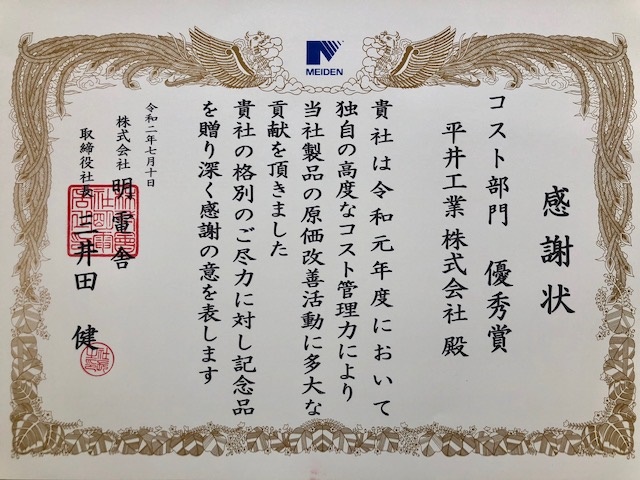 MEIDEN
感謝状
コスト部門 優秀賞
平井工業 株式会社 殿
貴社は令和元年度において
独自の高度なコスト管理力により
当社製品の原価改善活動に多大な
貢献を頂きました
貴社の格別のご尽力に対し記念品
を贈り深く感謝の意を表します
令和二年七月十日
株式会社 明電舎
取締役社長 三井田 健